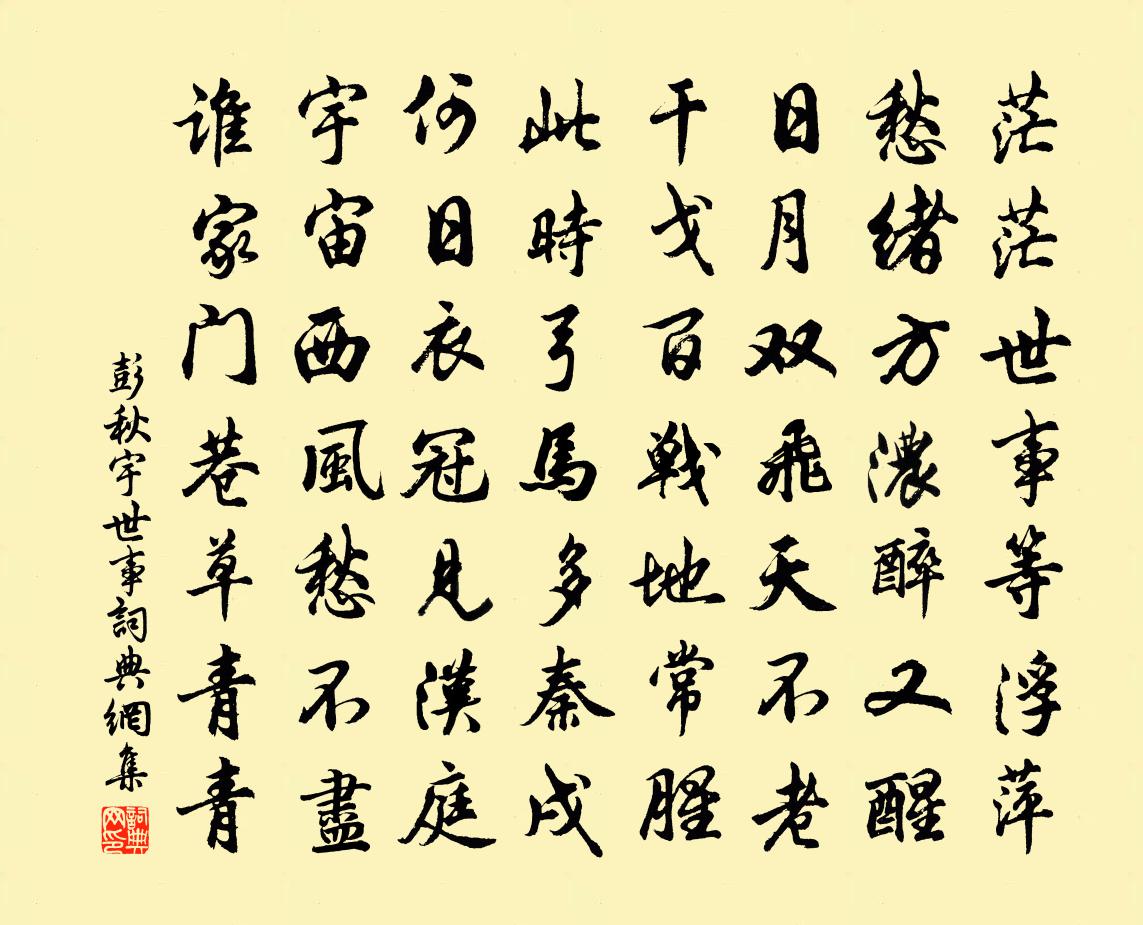 茫茫世事等浮萍
愁緒方濃醉又醒
日月双飛天不老
干戈百戰地常腥
此時弓馬多秦戍
何日衣冠見漢庭
宇宙西風愁不盡
誰家門巷草青青
彭秋宇世事詞典網集
詞典網印